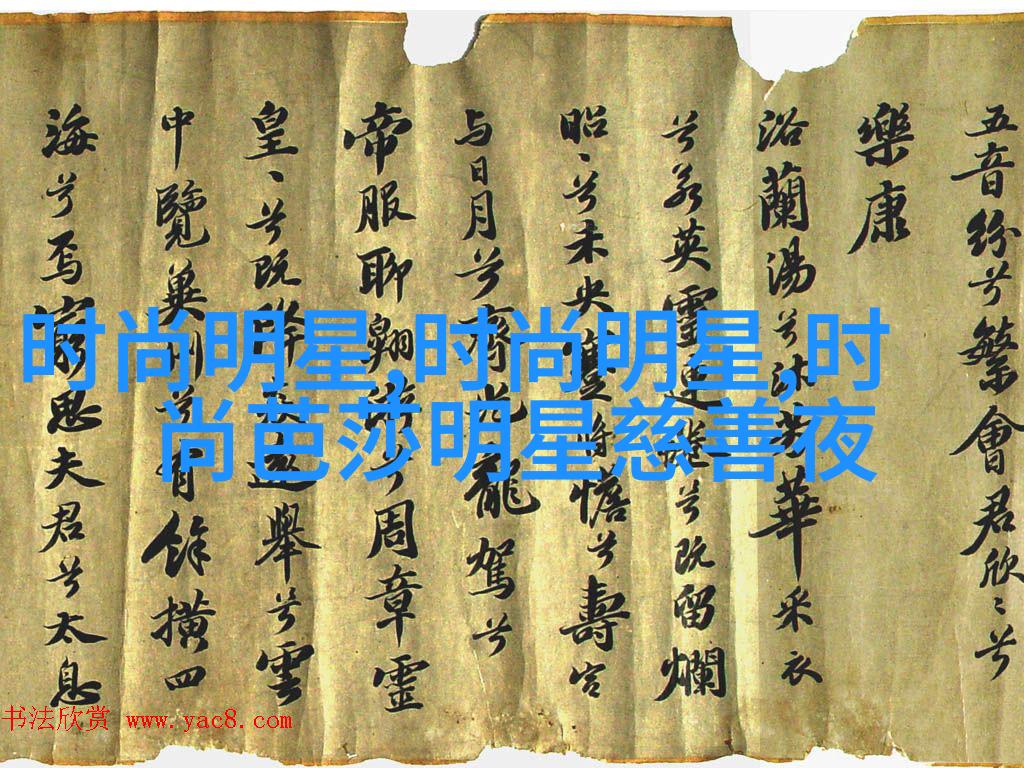 五音紛兮繁會君欣〻兮
樂康
浴蘭湯兮沐芳華采衣
兮若英靈連蜷兮既留爛
昭〻兮未央蹇将憺兮壽宮
与日月兮齊光龍駕兮
帝服聊翱遊兮周章霊
皇〻兮既降猋遠舉兮雲
中覽兾州兮有餘橫四
海兮焉窮思夫君兮太息
时尚明星,时尚明星,时
尚芭莎明星慈善夜
书法欣赏 www.yac8.com